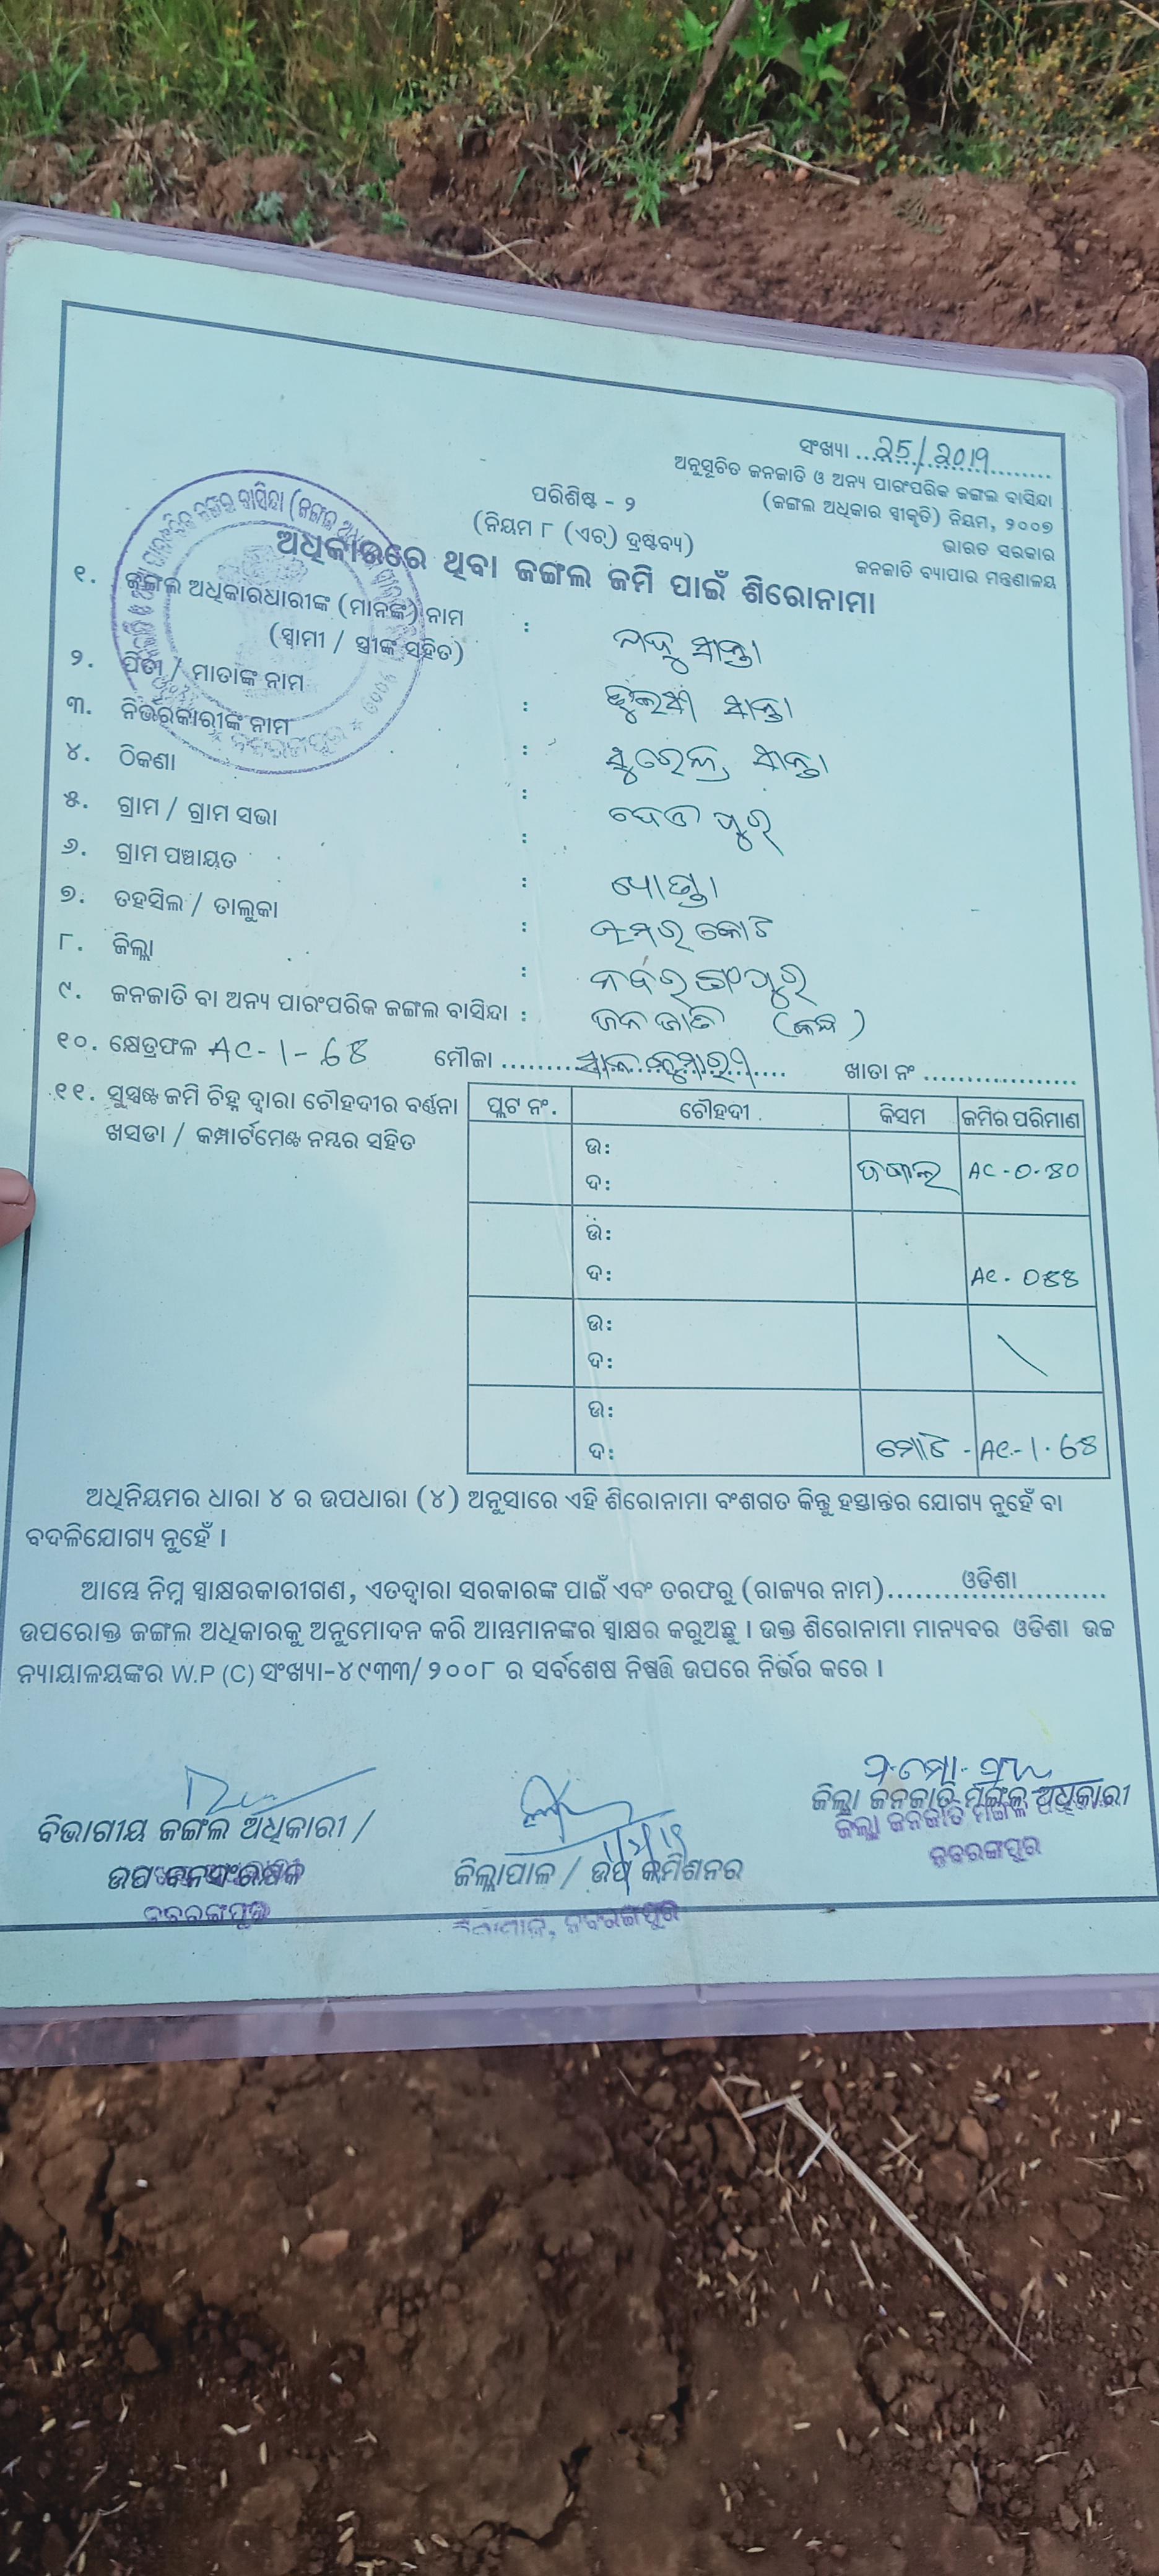 ସଂଖ୍ୟା ... 25/2019
ଅନୁସୂଚିତ ଜନଜାତି ଓ ଅନ୍ୟ ପାରଂପରିକ ଜଙ୍ଗଲ ବାସିନ୍ଦା
(ଜଙ୍ଗଲ ଅଧିକାର ସ୍ୱୀକୃତି) ନିୟମ, ୨୦୦୭
ଭାରତ ସରକାର
ଜନଜାତି ବ୍ୟାପାର ମନ୍ତ୍ରଣାଳୟ
ପରିଶିଷ୍ଟ - ୨
(ନିୟମ ୮ (ଏଚ୍) ଦ୍ରଷ୍ଟବ୍ୟ)
ଅଧିକାରରେ ଥିବା ଜଙ୍ଗଲ ଜମି ପାଇଁ ଶିରୋନାମା
୧. ଜଙ୍ଗଲ ଅଧିକାରଧାରୀଙ୍କ (ମାନଙ୍କ) ନାମ :
(ସ୍ୱାମୀ / ସ୍ତ୍ରୀଙ୍କ ସହିତ)
୨. ପିତା / ମାତାଙ୍କ ନାମ :
୩. ନିର୍ଭରକାରୀଙ୍କ ନାମ : ସୁରେନ୍ଦ୍ର
୪. ଠିକଣା :
୫. ଗ୍ରାମ / ଗ୍ରାମ ସଭା :
୬. ଗ୍ରାମ ପଞ୍ଚାୟତ :
୭. ତହସିଲ / ତାଲୁକା : ଉମରକୋଟ
୮. ଜିଲ୍ଲା : ନବରଙ୍ଗପୁର
୯. ଜନଜାତି ବା ଅନ୍ୟ ପାରଂପରିକ ଜଙ୍ଗଲ ବାସିନ୍ଦା : ଜନଜାତି
୧୦. କ୍ଷେତ୍ରଫଳ AC-1-68 ମୌଜା ... ଖାତା ନଂ ...
୧୧. ସୁସ୍ପଷ୍ଟ ଜମି ଚିହ୍ନ ଦ୍ୱାରା ଚୌହଦୀର ବର୍ଣ୍ଣନା
ଖସଡା / କମ୍ପାର୍ଟମେଣ୍ଟ ନମ୍ବର ସହିତ
ପ୍ଲଟ ନଂ. ଚୌହଦୀ କିସମ ଜମିର ପରିମାଣ
ଉ:
ଦ: ଜଙ୍ଗଲ AC-0.80
ଉ:
ଦ: AC. 088
ଉ:
ଦ:
ଉ:
ଦ: ମୋଟ - AC-1.68
ଅଧିନିୟମର ଧାରା ୪ ର ଉପଧାରା (୪) ଅନୁସାରେ ଏହି ଶିରୋନାମା ବଂଶଗତ କିନ୍ତୁ ହସ୍ତାନ୍ତର ଯୋଗ୍ୟ ନୁହେଁ ବା
ବଦଳିଯୋଗ୍ୟ ନୁହେଁ ।
ଆମ୍ଭେ ନିମ୍ନ ସ୍ୱାକ୍ଷରକାରୀଗଣ, ଏତଦ୍ୱାରା ସରକାରଙ୍କ ପାଇଁ ଏବଂ ତରଫରୁ (ରାଜ୍ୟର ନାମ)... ଓଡିଶା ...
ଉପରୋକ୍ତ ଜଙ୍ଗଲ ଅଧିକାରକୁ ଅନୁମୋଦନ କରି ଆମ୍ଭମାନଙ୍କର ସ୍ୱାକ୍ଷର କରୁଅଛୁ । ଉକ୍ତ ଶିରୋନାମା ମାନ୍ୟବର ଓଡିଶା ଉଚ୍ଚ
ନ୍ୟାୟାଳୟଙ୍କର W.P (C) ସଂଖ୍ୟା-୪୯୩୩/୨୦୦୮ ର ସର୍ବଶେଷ ନିଷ୍ପତ୍ତି ଉପରେ ନିର୍ଭର କରେ ।
ଜିଲ୍ଲା ଜନଜାତି ମଙ୍ଗଳ ଅଧିକାରୀ
ଜିଲ୍ଲା ଜନଜାତି ମଙ୍ଗଳ
ନବରଙ୍ଗପୁର
ବିଭାଗୀୟ ଜଙ୍ଗଲ ଅଧିକାରୀ /
ଉପ ବନସଂରକ୍ଷକ
ନବରଙ୍ଗପୁର
ଜିଲ୍ଲାପାଳ / ଉପ କମିଶନର
ଜିଲ୍ଲାପାଳ, ନବରଙ୍ଗପୁର